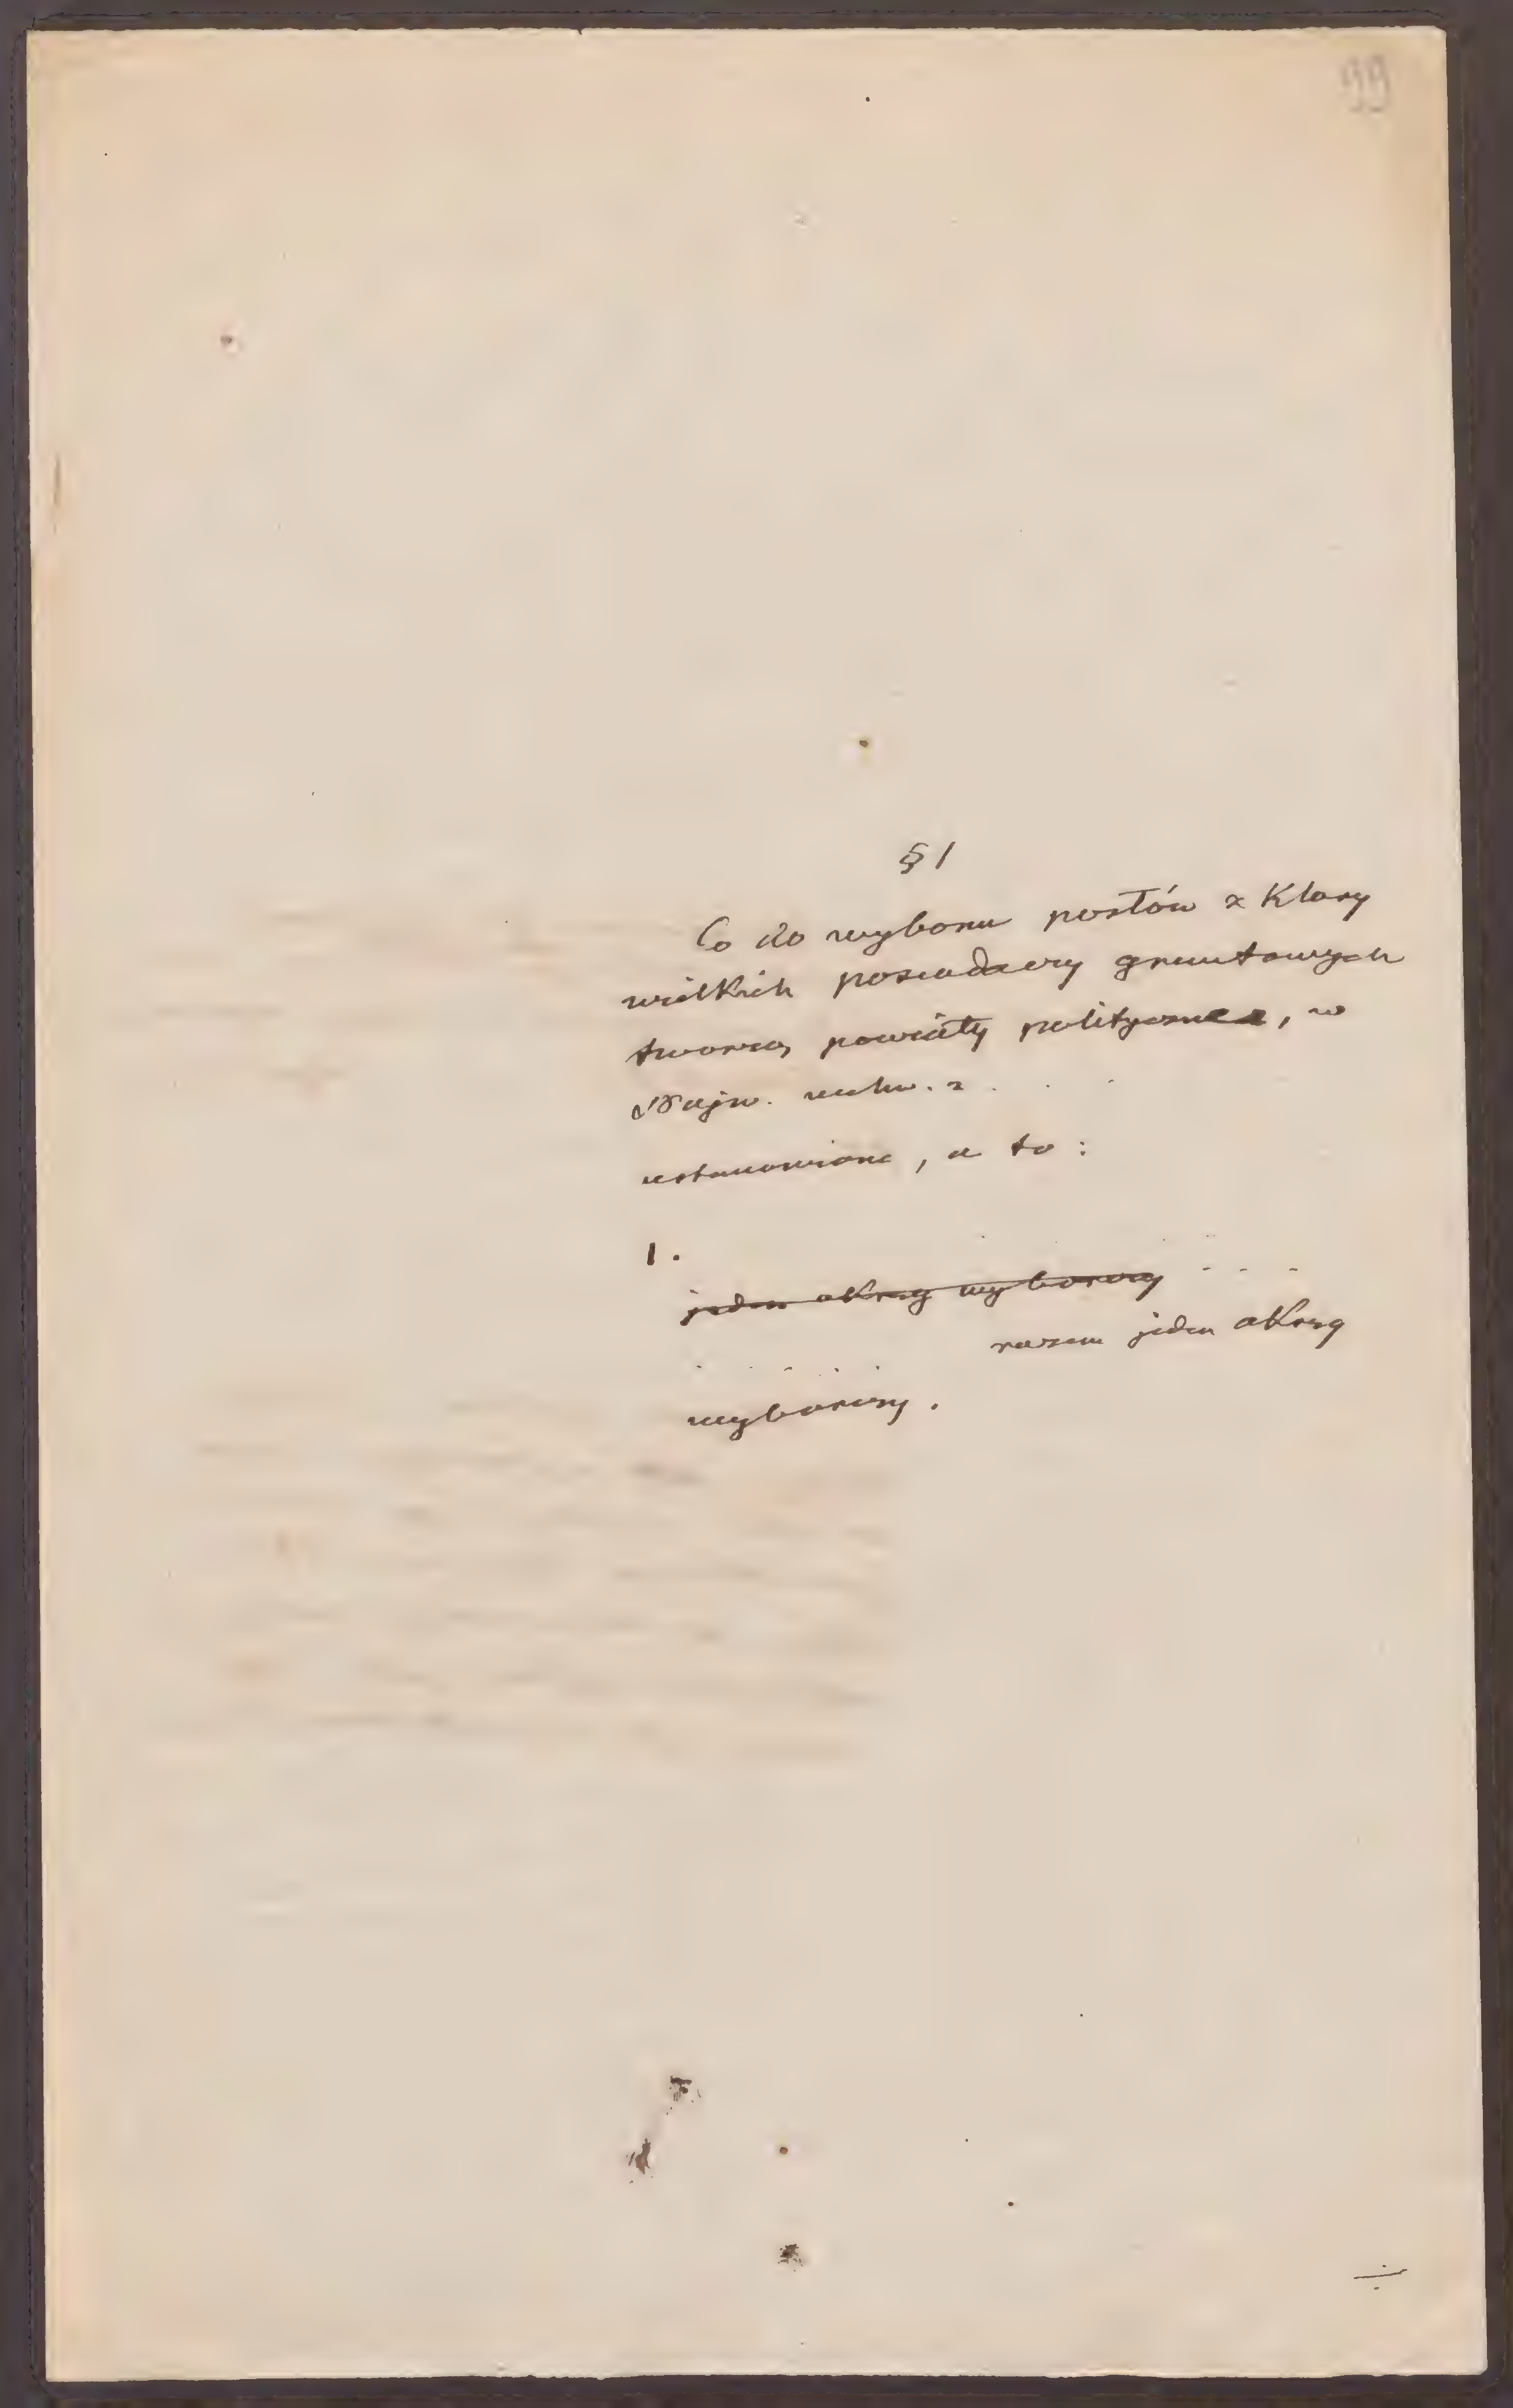 99
§ 1
Co do wyboru posłów z Klasy
wielkich posiadaczy gruntowych
tworzą powiaty polityczne, w
Najw. uchw. z . . .
ustanowione, a to :
1.
jeden okręg wyborczy . . . .
. . . . . razem jeden okręg
wyborczy .